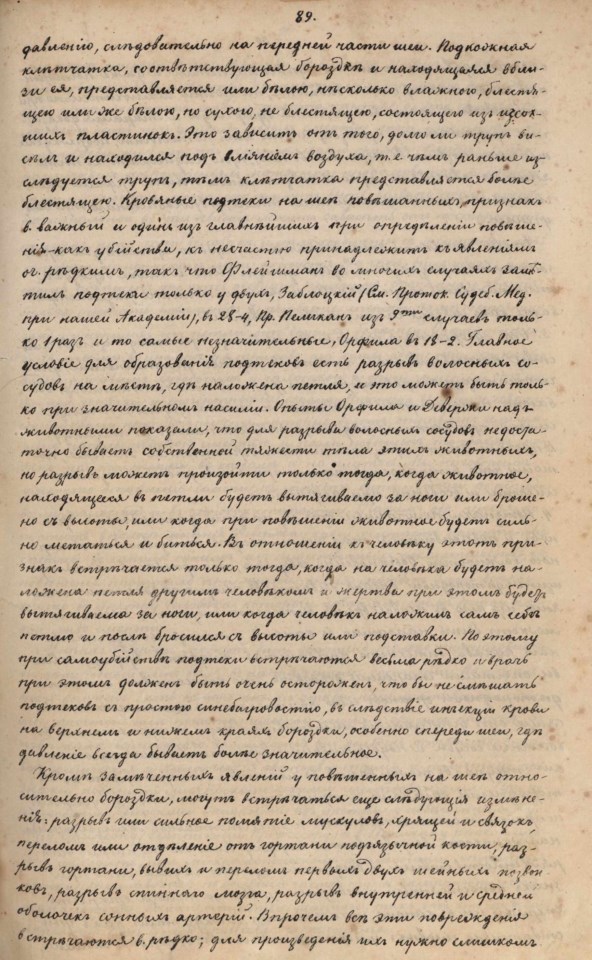 89.
давленію, слѣдовательно на передней части шеи. Подкожная
клѣтчатка, соотвѣтствующая бороздкѣ и находящаяся вбли-
зи ея, представляется или бѣлою, нѣсколько влажною, блестя-
щею или же бѣлою, но сухого, не блестящею, состоящего изъ изсох-
шихъ пластинокъ. Это зависитъ отъ того, долго ли трупъ ви-
сѣлъ и находился подъ вліяніемъ воздуха, т. е чѣмъ раньше из-
слѣдуется трупъ, тѣмъ клѣтчатка представляется болѣе
блестящею. Кровяные подтеки на шеѣ повѣшанныхъ, признакъ
в. важный и одинъ изъ главнѣйшихъ при опредѣленіи повѣше-
нія какъ убійства, къ несчастью принадлежитъ къ явленіямъ
оч. рѣдкимъ, такъ что Флейшманъ во многихъ случаяхъ замѣ-
тилъ подтеки только у двухъ, Заблоцкій (См. Проток. Судеб. Мед.
при нашей Академіи), въ 28-4, Пр. Пеликанъ изъ 9ти случаевъ толь-
ко 1 разъ и то самые незначительные, Орфила въ 18-2. Главное
условіе для образованія подтековъ есть разрывъ волосныхъ со-
судовъ на мѣстѣ, гдѣ наложена петля, и это можетъ быть толь-
ко при значительномъ насиліи. Опыты Орфила и Девержи надъ
животными показали, что для разрыва волосныхъ сосудовъ недоста-
точно бываетъ собственной тяжести тѣла этихъ животныхъ,
но разрывъ можетъ произойти только тогда, когда животное,
находящееся въ петли будетъ вытягиваемо за ноги или броше-
но съ высоты, или когда при повѣшеніи животное будетъ силь-
но метаться и биться. Въ отношеніи къ человѣку этотъ при-
знакъ встрѣчается только тогда, когда на человѣка будетъ на-
ложена петля другимъ человѣкомъ и жертва при этомъ будетъ
вытягиваема за ноги, или когда человѣкъ наложилъ самъ себѣ
петлю и послѣ бросился съ высоты или подставки. Поэтому
при самоубійствѣ подтеки встрѣчаются весьма рѣдко и врачъ
при этомъ долженъ быть очень остороженъ, что бы не смѣшать
подтековъ съ простою синебагровостію, въ слѣдствіе инъекціи крови
на верхнемъ и нижнемъ краяхъ бороздки, особенно спереди шеи, гдѣ
давленіе всегда бываетъ болѣе значительное.
Кромѣ замѣченныхъ явленій у повѣшенныхъ на шеѣ отно-
сительно бороздки, могутъ встрѣчаться еще слѣдующія измѣне-
нія: разрывъ или сильное помятіе мускуловъ, хрящей и связокъ,
переломъ или отдѣленіе отъ гортани подъязычной кости, раз-
рывъ гортани, вывихъ и переломъ первыхъ двухъ шейныхъ позвон-
ковъ, разрывъ спиннаго мозга, разрывъ внутренней и средней
оболочекъ сонныхъ артерій. Впрочемъ всѣ эти поврежденія
встрѣчаются в. рѣдко; для произведенія ихъ нужно слишкомъ